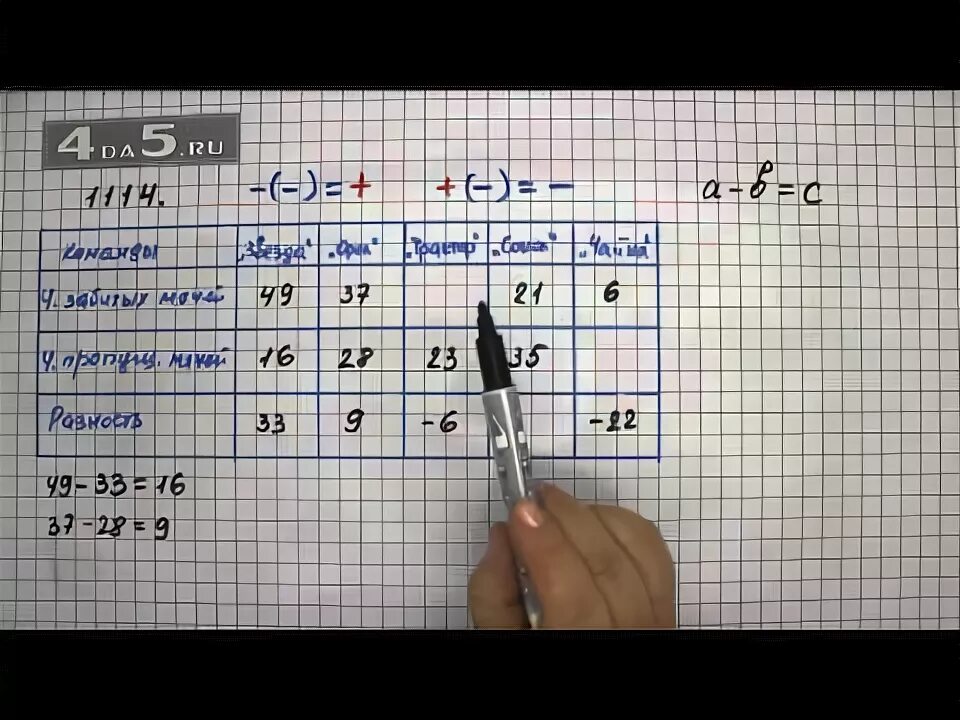 4DA5.RU
1114. -(-)=+ +(-)=- a-b=c
Команды "Звезда" "Орёл" "Трактор" "Сокол" "Чайка"
Ч. забитых мячей 49 37 21 6
Ч. пропущ. мячей 16 28 23 35
Разность 33 9 -6 -22
49-33=16
37-28=9